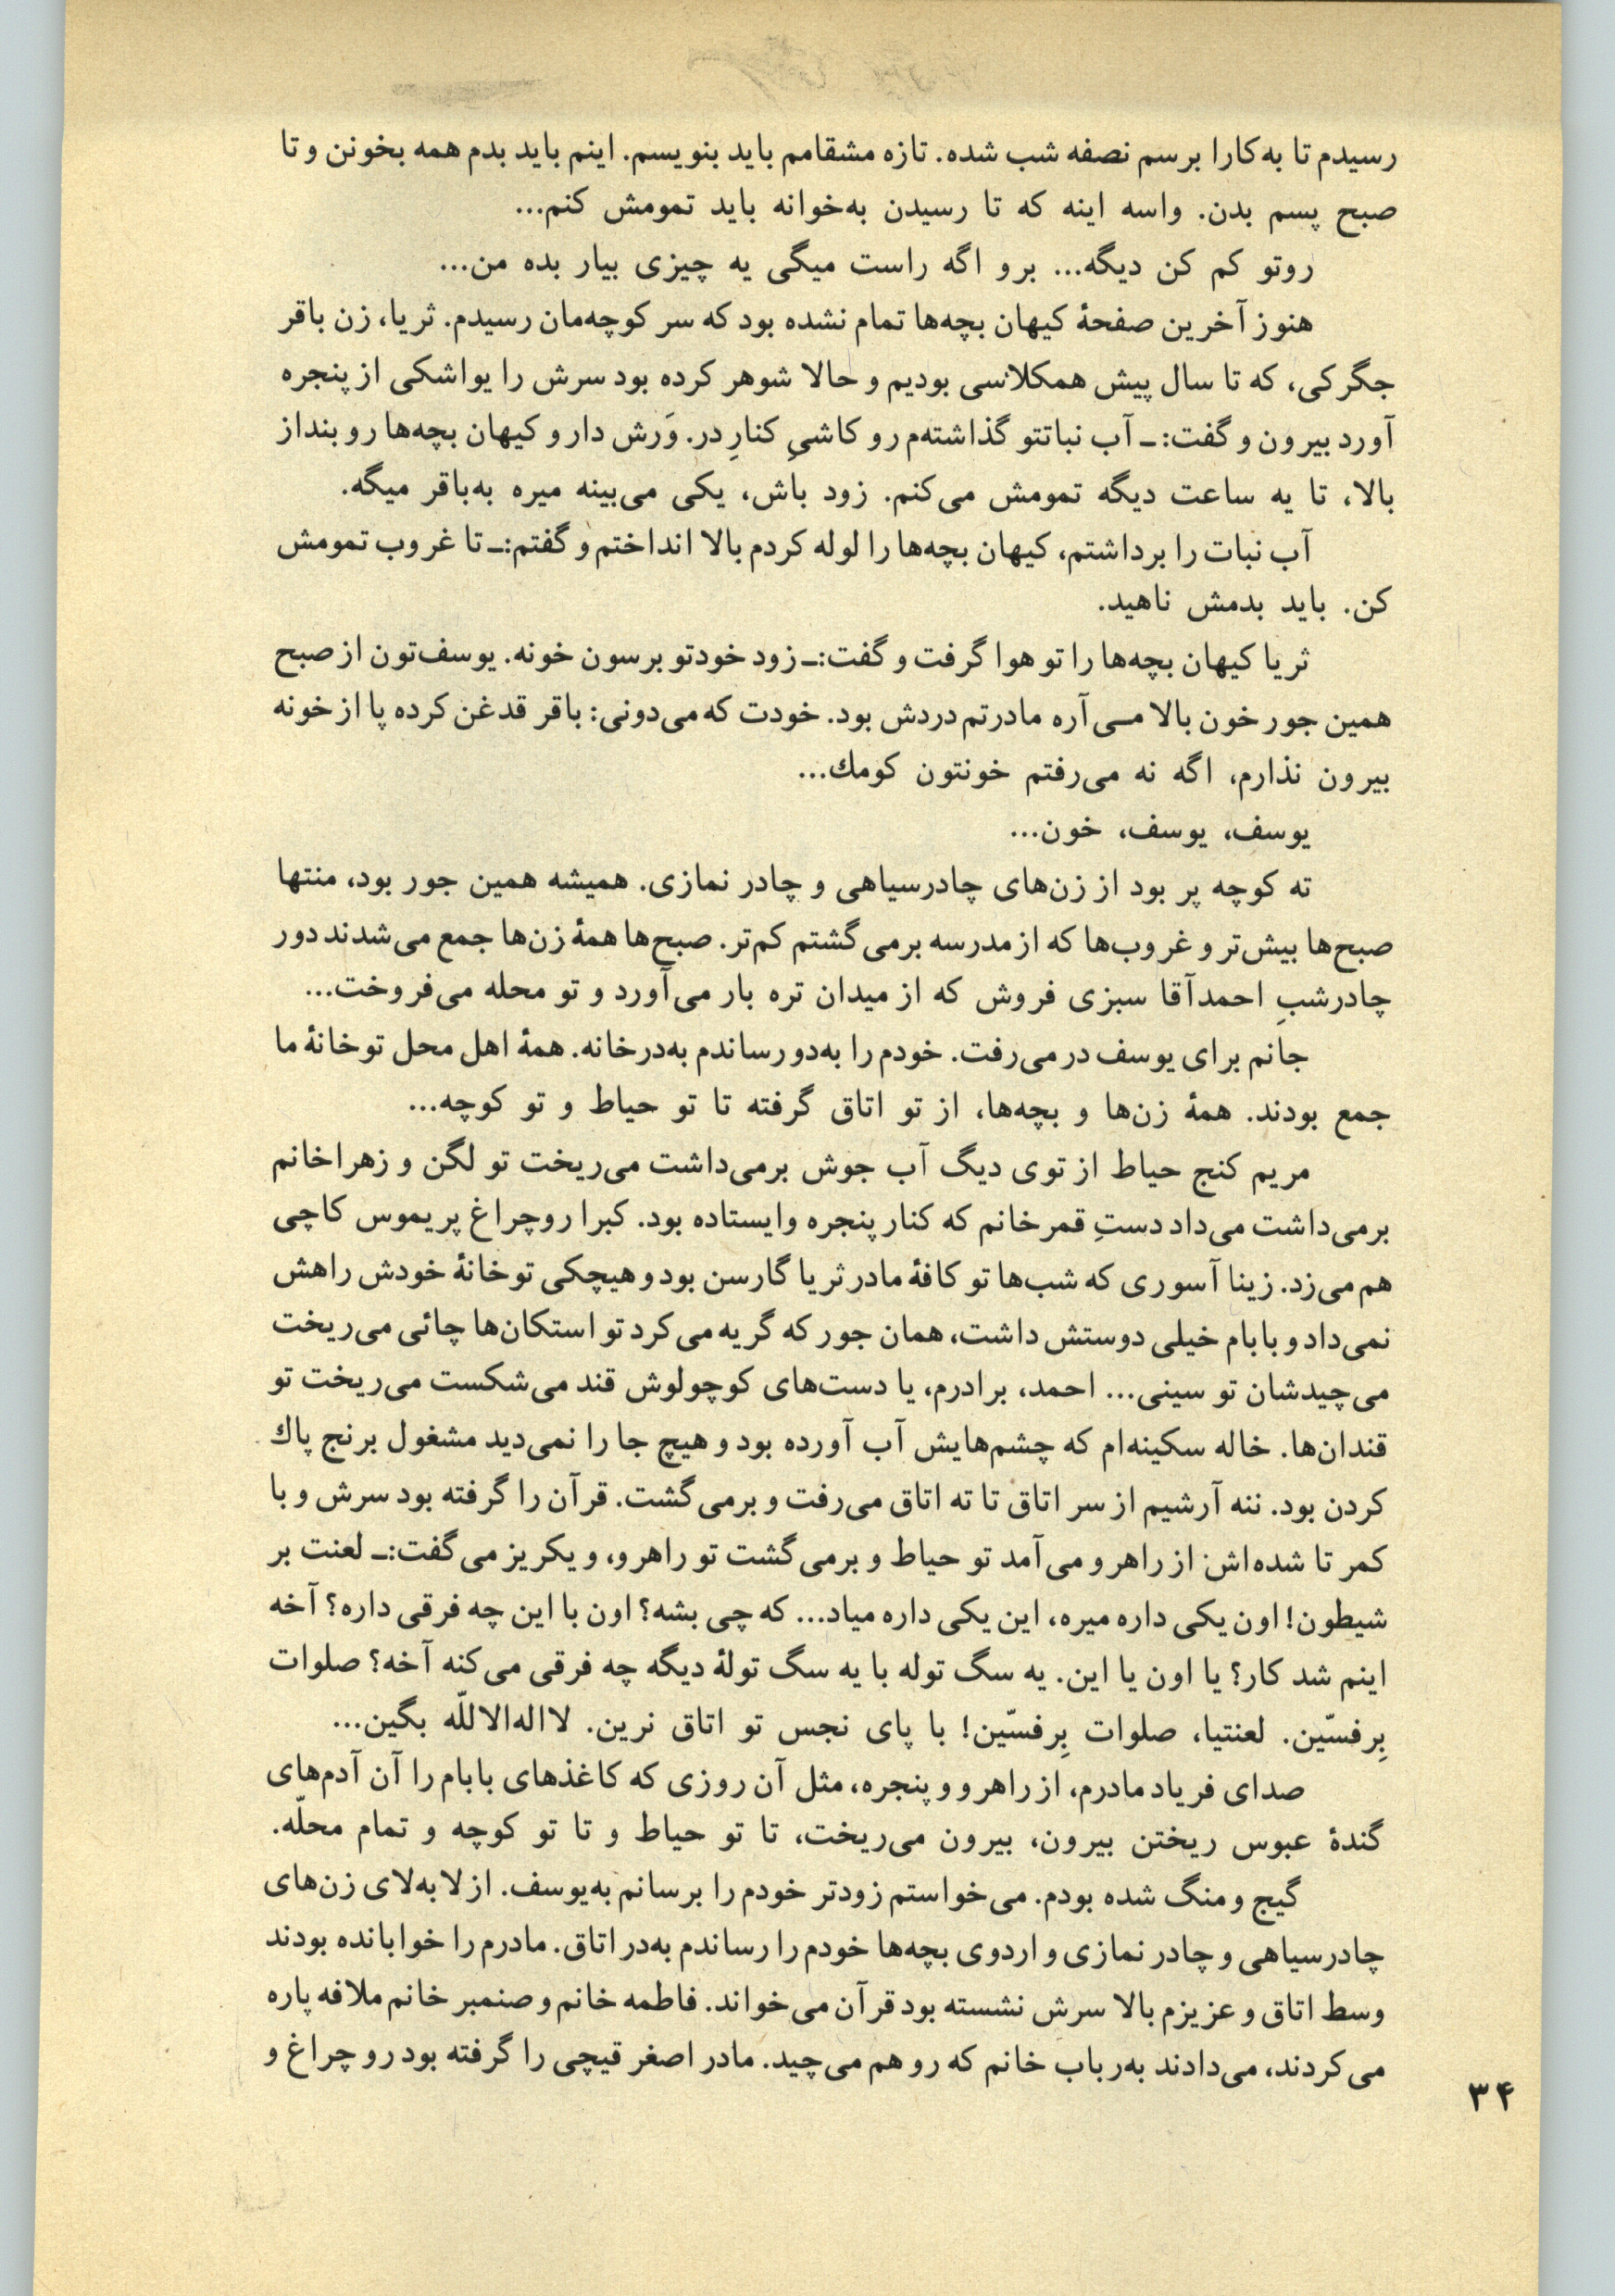 رسیدم تا به‌کارا برسم نصفه شب شده. تازه مشقامم باید بنویسم. اینم باید بدم همه بخونن و تا
صبح پسم بدن. واسه اینه که تا رسیدن به‌خوانه باید تمومش کنم...
روتو کم کن دیگه... برو اگه راست میگی یه چیزی بیار بده من...
هنوز آخرین صفحهٔ کیهان بچه‌ها تمام نشده بود که سر کوچه‌مان رسیدم. ثریا، زن باقر
جگرکی، که تا سال پیش همکلاسی بودیم و حالا شوهر کرده بود سرش را یواشکی از پنجره
آورد بیرون و گفت:ـ آب نباتتو گذاشته‌م رو کاشیِ کنارِ در. وَرش دار و کیهان بچه‌ها رو بنداز
بالا، تا یه ساعت دیگه تمومش می‌کنم. زود باش، یکی می‌بینه میره به‌باقر میگه.
آب نبات را برداشتم، کیهان بچه‌ها را لوله کردم بالا انداختم و گفتم:ـ تا غروب تمومش
کن. باید بدمش ناهید.
ثریا کیهان بچه‌ها را تو هوا گرفت و گفت:ـ زود خودتو برسون خونه. یوسف‌تون از صبح
همین جور خون بالا مـی‌آره مادرتم دردش بود. خودت که می‌دونی: باقر قدغن کرده پا از خونه
بیرون نذارم، اگه نه می‌رفتم خونتون کومك...
یوسف، یوسف، خون...
ته کوچه پر بود از زن‌های چادرسیاهی و چادر نمازی. همیشه همین جور بود، منتها
صبح‌ها بیش‌تر و غروب‌ها که از مدرسه برمی‌گشتم کم‌تر. صبح‌ها همهٔ زن‌ها جمع می‌شدند دور
چادرشبِ احمدآقا سبزی فروش که از میدان تره بار می‌آورد و تو محله می‌فروخت...
جانم برای یوسف در می‌رفت. خودم را به‌دو رساندم به‌درخانه. همهٔ اهل محل تو خانهٔ ما
جمع بودند. همهٔ زن‌ها و بچه‌ها، از تو اتاق گرفته تا تو حیاط و تو کوچه...
مریم کنج حیاط از توی دیگ آب جوش برمی‌داشت می‌ریخت تو لگن و زهراخانم
برمی‌داشت می‌داد دستِ قمرخانم که کنار پنجره وایستاده بود. کبرا رو چراغ پریموس کاچی
هم می‌زد. زینا آسوری که شب‌ها تو کافهٔ مادر ثریا گارسن بود و هیچکی تو خانهٔ خودش راهش
نمی‌داد و بابام خیلی دوستش داشت، همان جور که گریه می‌کرد تو استکان‌ها چائی می‌ریخت
می‌چیدشان تو سینی... احمد، برادرم، یا دست‌های کوچولوش قند می‌شکست می‌ریخت تو
قندان‌ها. خاله سکینه‌ام که چشم‌هایش آب آورده بود و هیچ جا را نمی‌دید مشغول برنج پاك
کردن بود. ننه آرشیم از سر اتاق تا ته اتاق می‌رفت و برمی‌گشت. قرآن را گرفته بود سرش و با
کمر تا شده‌اش از راهرو می‌آمد تو حیاط و برمی‌گشت تو راهرو، و یکریز می‌گفت:ـ لعنت بر
شیطون! اون یکی داره میره، این یکی داره میاد... که چی بشه؟ اون با این چه فرقی داره؟ آخه
اینم شد کار؟ یا اون یا این. یه سگ توله با یه سگ تولهٔ دیگه چه فرقی می‌کنه آخه؟ صلوات
بِرفسّین. لعنتیا، صلوات بِرفسّین! با پای نجس تو اتاق نرین. لااله‌الاللّه بگین...
صدای فریاد مادرم، از راهرو و پنجره، مثل آن روزی که کاغذهای بابام را آن آدم‌های
گندهٔ عبوس ریختن بیرون، بیرون می‌ریخت، تا تو حیاط و تا تو کوچه و تمام محلّه.
گیج و منگ شده بودم. می‌خواستم زودتر خودم را برسانم به‌یوسف. از لابه‌لای زن‌های
چادرسیاهی و چادر نمازی و اردوی بچه‌ها خودم را رساندم به‌در اتاق. مادرم را خوابانده بودند
وسط اتاق و عزیزم بالا سرش نشسته بود قرآن می‌خواند. فاطمه خانم و صنمبر خانم ملافه پاره
می‌کردند، می‌دادند به‌رباب خانم که رو هم می‌چید. مادر اصغر قیچی را گرفته بود رو چراغ و
۳۴